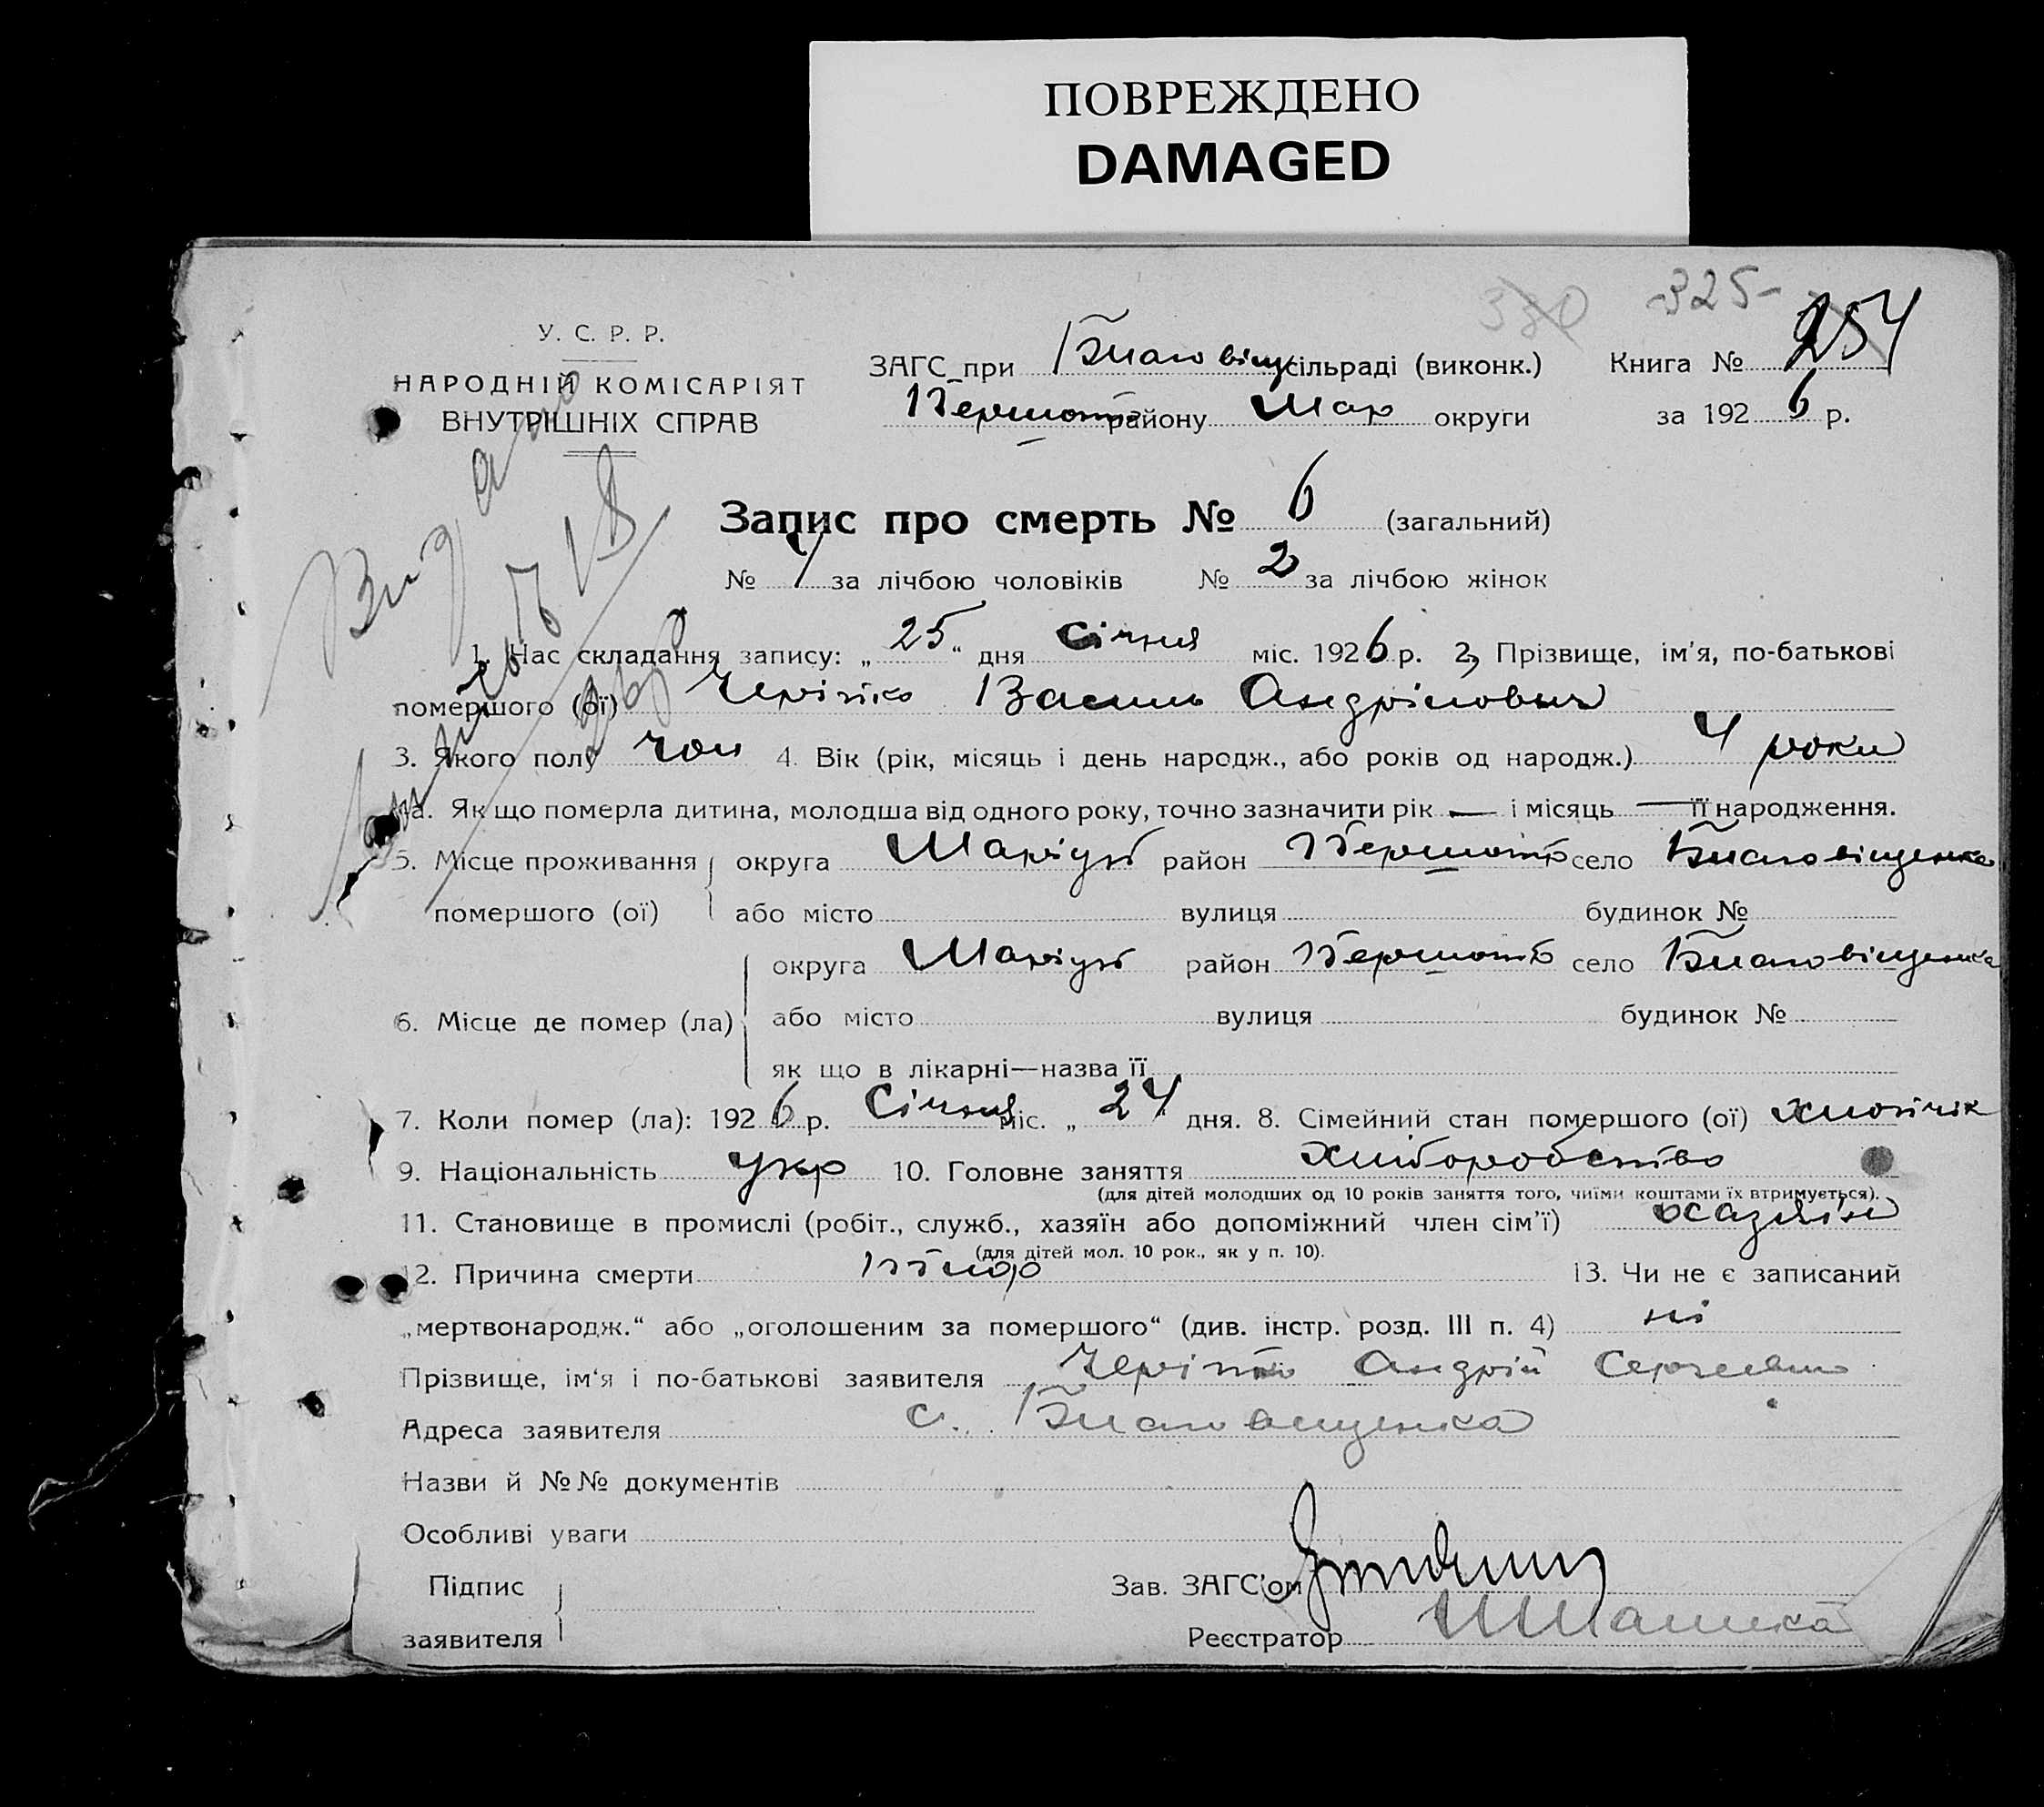 ПОВРЕЖДЕНО
DAMAGED
330 325-
У. С. Р. Р.
НАРОДНІЙ КОМІСАРІЯТ
ВНУТРІШНІХ СПРАВ
ЗАГС при Благовіщ сільраді (виконк.) Книга № 254
району Мар округи за 1926 р.
Видано
Запис про смерть № 6 (загальний)
№ 4 за лічбою чоловіків № 2 за лічбою жінок
1. Час складання запису: „25“ дня Січня міс. 1926 р. 2, Прізвище, ім'я, по-батькові
помершого (ої) Василь Андрійович
3. Якого полу чол 4. Вік (рік, місяць і день народж., або років од народж.) 4 роки
4а. Як що померла дитина, молодша від одного року, точно зазначити рік — і місяць — її народження.
5. Місце проживання округа Маріуп район село Благовіщенка
помершого (ої) або місто вулиця будинок №
округа Маріуп район село Благовіщенка
6. Місце де помер (ла) або місто вулиця будинок №
як що в лікарні—назва її
7. Коли помер (ла): 1926 р. Січня міс. „24 дня. 8. Сімейний стан помершого (ої) хлопчік
9. Національність укр 10. Головне заняття хліборобство
(для дітей молодших од 10 років заняття того, чиїми коштами їх втримується).
11. Становище в промислі (робіт., служб., хазяїн або допоміжний член сім'ї) хазяїн
(для дітей мол. 10 рок., як у п. 10).
12. Причина смерти 13. Чи не є записаний
„мертвонародж.“ або „оголошеним за помершого“ (див. інстр. розд. III п. 4) ні
Прізвище, ім'я і по-батькові заявителя Андрій
Адреса заявителя с. Благовещенка
Назви й №№ документів
Особливі уваги
Підпис
заявителя
Зав. ЗАГС'ом
Реєстратор